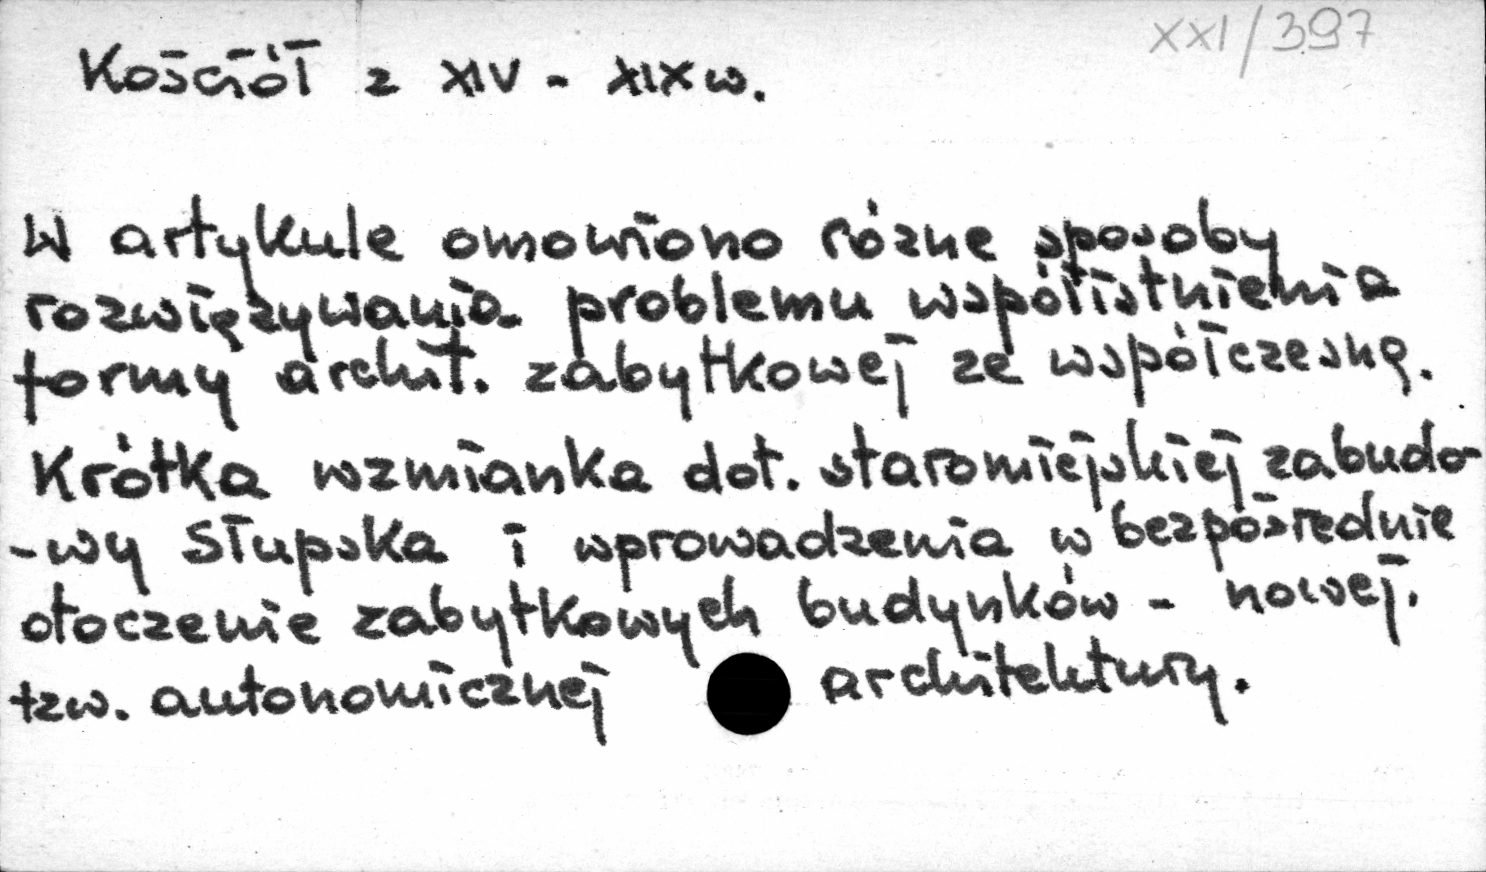 XXI/397
Kościół z XIV - XIX w.
W artykule omowiono różne sposoby
rozwiązywania problemu współistnienia
formy archit. zabytkowej ze współczesną.
Krótka wzmianka dot. staromiejskiej zabudo-
-wy Słupska i wprowadzenia w bezpośrednie
otoczenie zabytkowych budynków - nowej.
tzw. autonomicznej architektury.